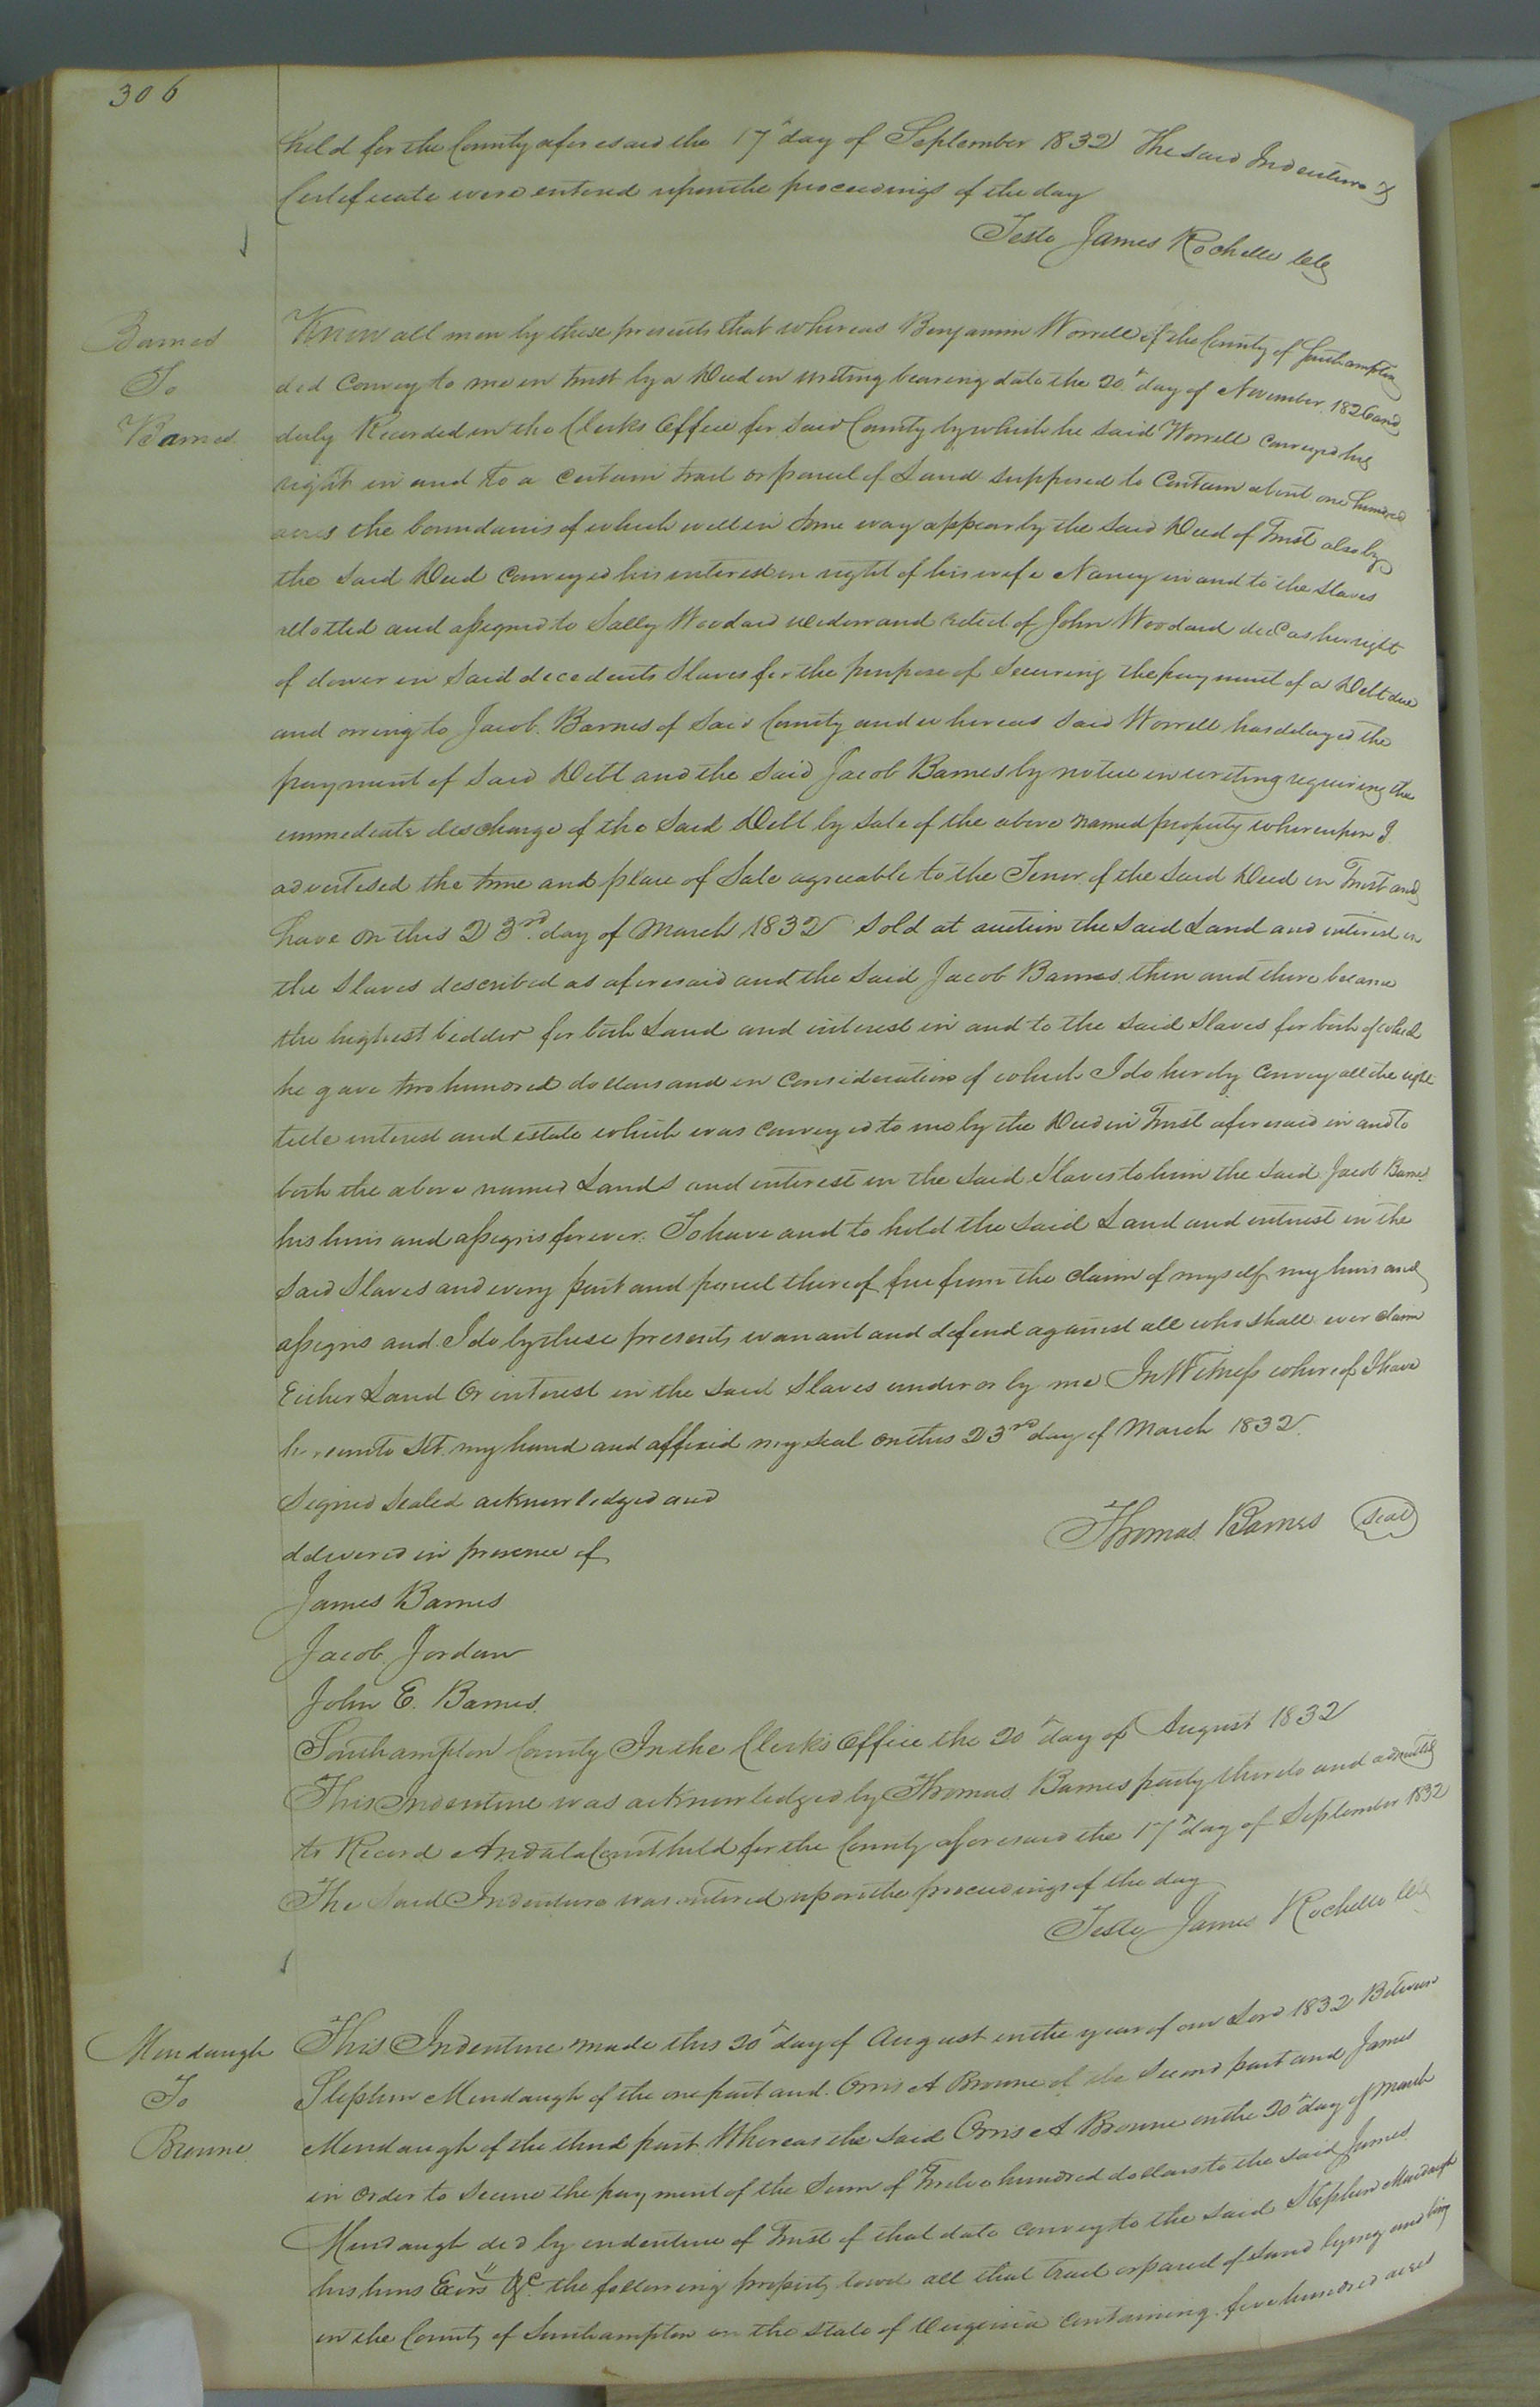 306
held for the County aforesaid the 17th day of September 1832 The said Indenture &
Certificate were entered upon the proceedings of the day
Teste James Rochelle Clk
Barnes
To
Barnes
Know all men by these presents that whereas Benjamin Worrell of the County of Southampton
did Convey to me in trust by a Deed in writing bearing date the 20th day of November 1826 and
duly Recorded in the Clerks Office for said County by which he said Worrell Conveyed his
right in and to a Certain tract or parcel of Land supposed to Contain about one hundred
acres the boundaries of which will in some way appear by the said Deed of Trust also by
the said Deed Conveyed his interest in right of his wife Nancy in and to the slaves
allotted and assigned to Sally Woodard widow and relict of John Woodard decd as her right
of dower in said decedents Slaves for the purpose of securing the payment of a Debt due
and owing to Jacob Barnes of said County and whereas said Worrell has delayed the
payment of said Debt and the said Jacob Barnes by notice in writing requiring the
immediate discharge of the said Debt by sale of the above named property whereupon I
advertised the time and place of Sale agreeable to the Tenor of the said Deed in Trust and
have on this 23rd day of March 1832 sold at auction the said Land and interest in
the slaves described as aforesaid and the said Jacob Barnes then and there became
the highest bidder for both Land and interest in and to the said slaves for both of which
he gave two hundred dollars and in Consideration of which I do hereby Convey all the right
title interest and estate which was Conveyed to me by the Deed in Trust aforesaid in and to
both the above named Lands and interest in the said Slaves to him the said Jacob Barnes
his heirs and assigns forever. To have and to hold the said Land and interest in the
said Slaves and every part and parcel thereof free from the claim of myself my heirs and
assigns and I do by these presents warrant and defend against all who shall ever claim
Either Land Or interest in the said Slaves under or by me In Witness whereof I have
hereunto Set my hand and affixed my seal on this 23rd day of March 1832.
Signed Sealed acknowledged and
delivered in presence of
Thomas Barnes Seal
James Barnes
Jacob Jordan
John E. Barnes
Southampton County In the Clerks Office the 20th day of August 1832
This Indenture was acknowledged by Thomas Barnes party thereto and admitted
to Record And at a Court held for the County aforesaid the 17th day of September 1832
The said Indenture was entered upon the proceedings of the day
Teste James Rochelle Clk
Mundaugh
To
Browne
This Indenture made this 20th day of August in the year of our Lord 1832 Between
Stephen Mundaugh of the one part and Orris A Browne of the Second part and James
Mundaugh of the third part Whereas the said Orris A Browne on the 20th day of March
in order to secure the payment of the Sum of Twelve hundred dollars to the said James
Mundaugh did by indenture of Trust of that date convey to the said Stephen Mundaugh
his heirs Exors &c the following property towit all that tract or parcel of Land lying and being
in the County of Southampton in the state of Virginia Containing five hundred acres